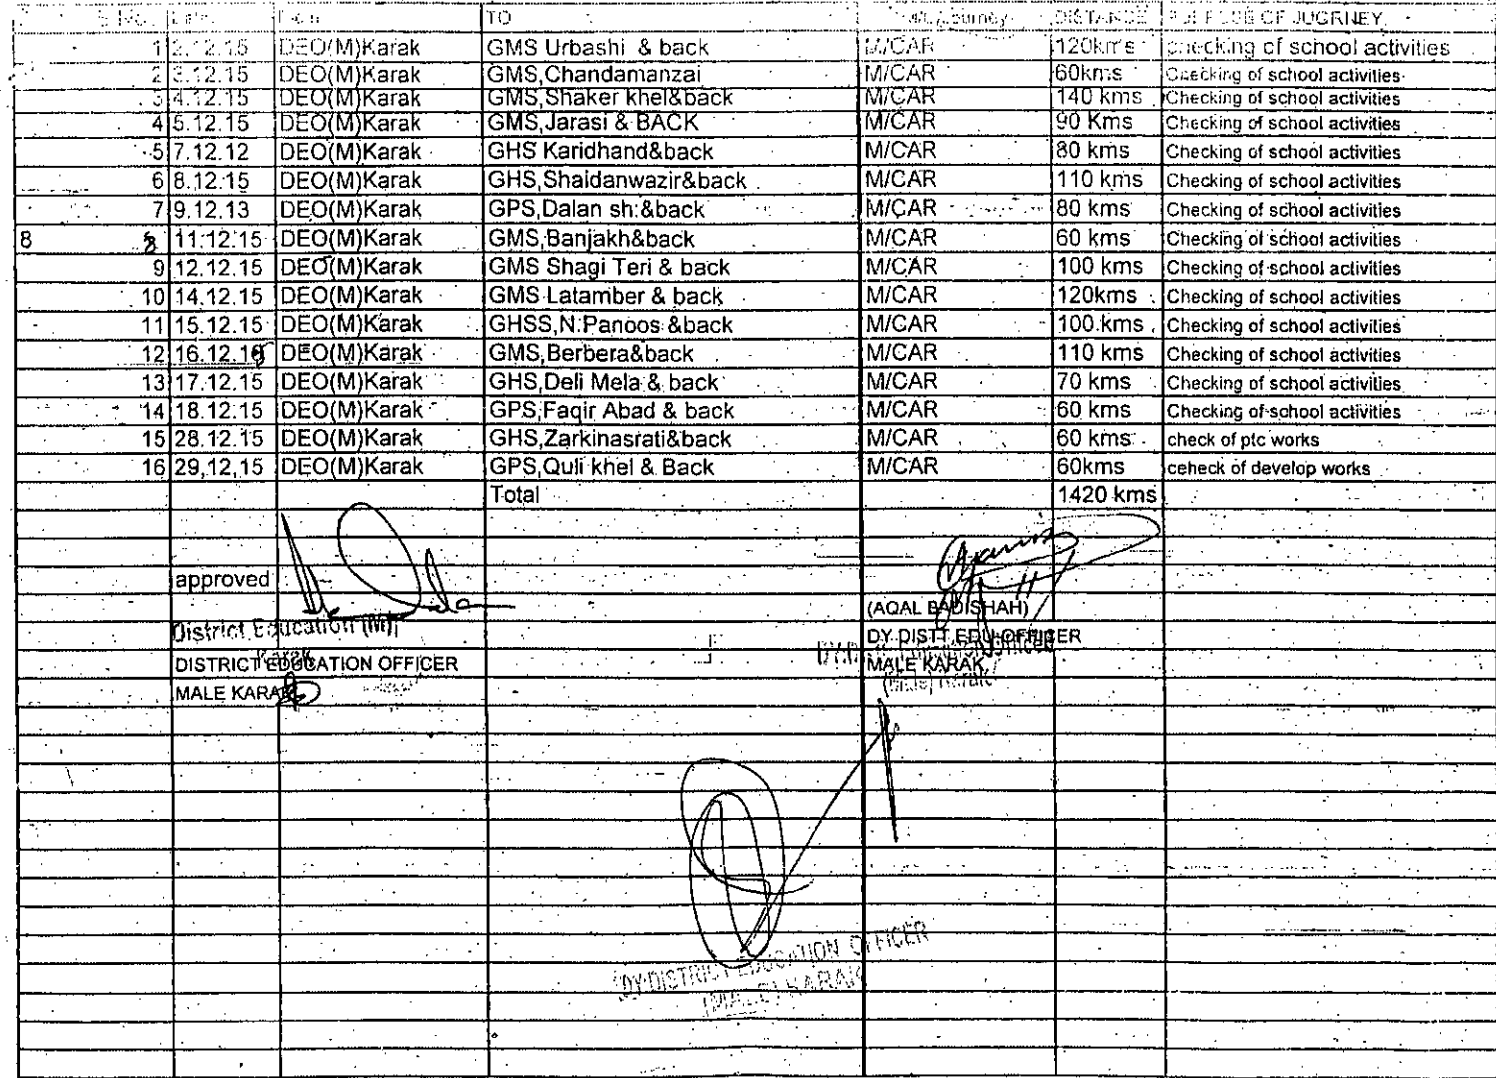 S No. Date From TO Journey DISTANCE PURPOSE OF JUORNEY
1 2.12.15 DEO(M)Karak GMS Urbashi & back M/CAR 120km's checking of school activities
2 3.12.15 DEO(M)Karak GMS,Chandamanzai M/CAR 60kms Checking of school activities
3 4.12.15 DEO(M)Karak GMS,Shaker khel&back M/CAR 140 kms Checking of school activities
4 5.12.15 DEO(M)Karak GMS,Jarasi & BACK M/CAR 90 Kms Checking of school activities
5 7.12.12 DEO(M)Karak GHS Karidhand&back M/CAR 80 kms Checking of school activities
6 8.12.15 DEO(M)Karak GHS,Shaidanwazir&back M/CAR 110 kms Checking of school activities
7 9.12.13 DEO(M)Karak GPS,Dalan sh:&back M/CAR 80 kms Checking of school activities
8 8 11.12.15 DEO(M)Karak GMS,Banjakh&back M/CAR 60 kms Checking of school activities
9 12.12.15 DEO(M)Karak GMS Shagi Teri & back M/CAR 100 kms Checking of school activities
10 14.12.15 DEO(M)Karak GMS Latamber & back M/CAR 120kms Checking of school activities
11 15.12.15 DEO(M)Karak GHSS,N:Panoos &back M/CAR 100 kms Checking of school activities
12 16.12.15 DEO(M)Karak GMS,Berbera&back M/CAR 110 kms Checking of school activities
13 17.12.15 DEO(M)Karak GHS,Deli Mela & back M/CAR 70 kms Checking of school activities
14 18.12.15 DEO(M)Karak GPS,Faqir Abad & back M/CAR 60 kms Checking of school activities
15 28.12.15 DEO(M)Karak GHS,Zarkinasrati&back M/CAR 60 kms check of ptc works
16 29,12,15 DEO(M)Karak GPS,Quli khel & Back M/CAR 60kms ceheck of develop works
Total 1420 kms
approved
(AQAL BADISHAH)
District Education (M)
Karak
DY DISTT EDU OFFICER
DISTRICT EDUCATION OFFICER MALE KARAK
MALE KARAK (Male) Karak
DY DISTRICT EDUCATION OFFICER
(MALE) KARAK